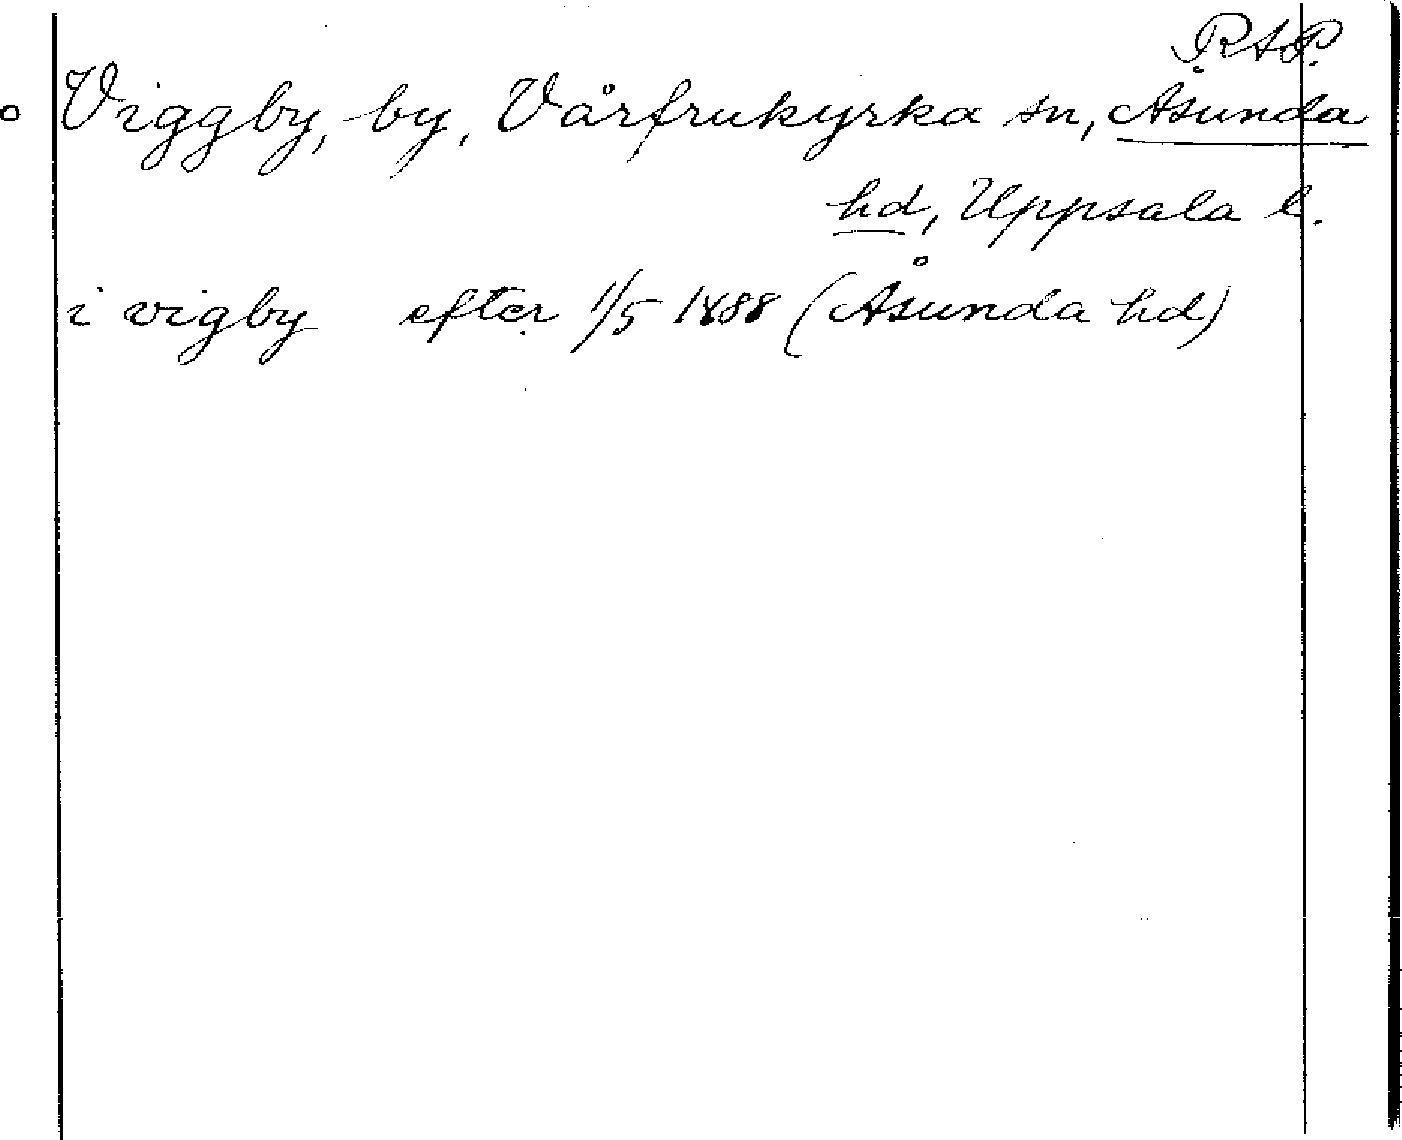 RAP.
Viggby, by, Vårfrukyrka sn, Åsunda
hd, Uppsala l.
i vigby efter 1/5 1488 (Åsunda hd)